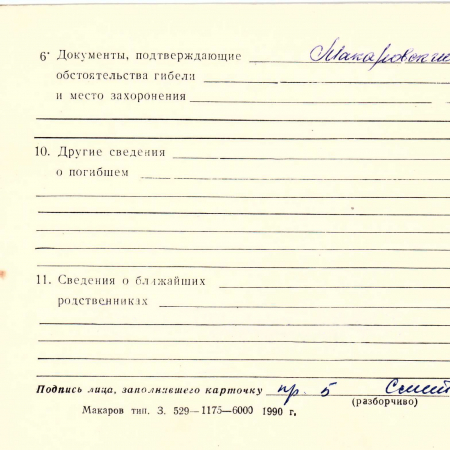 6· Документы, подтверждающие Макаровски
обстоятельства гибели
и место захоронения
10. Другие сведения
о погибшем
11. Сведения о ближайших
родственниках
Подпись лица, заполнившего карточку пр. 5
(разборчиво)
Макаров тип. З. 529—1175—6000 1990 г.